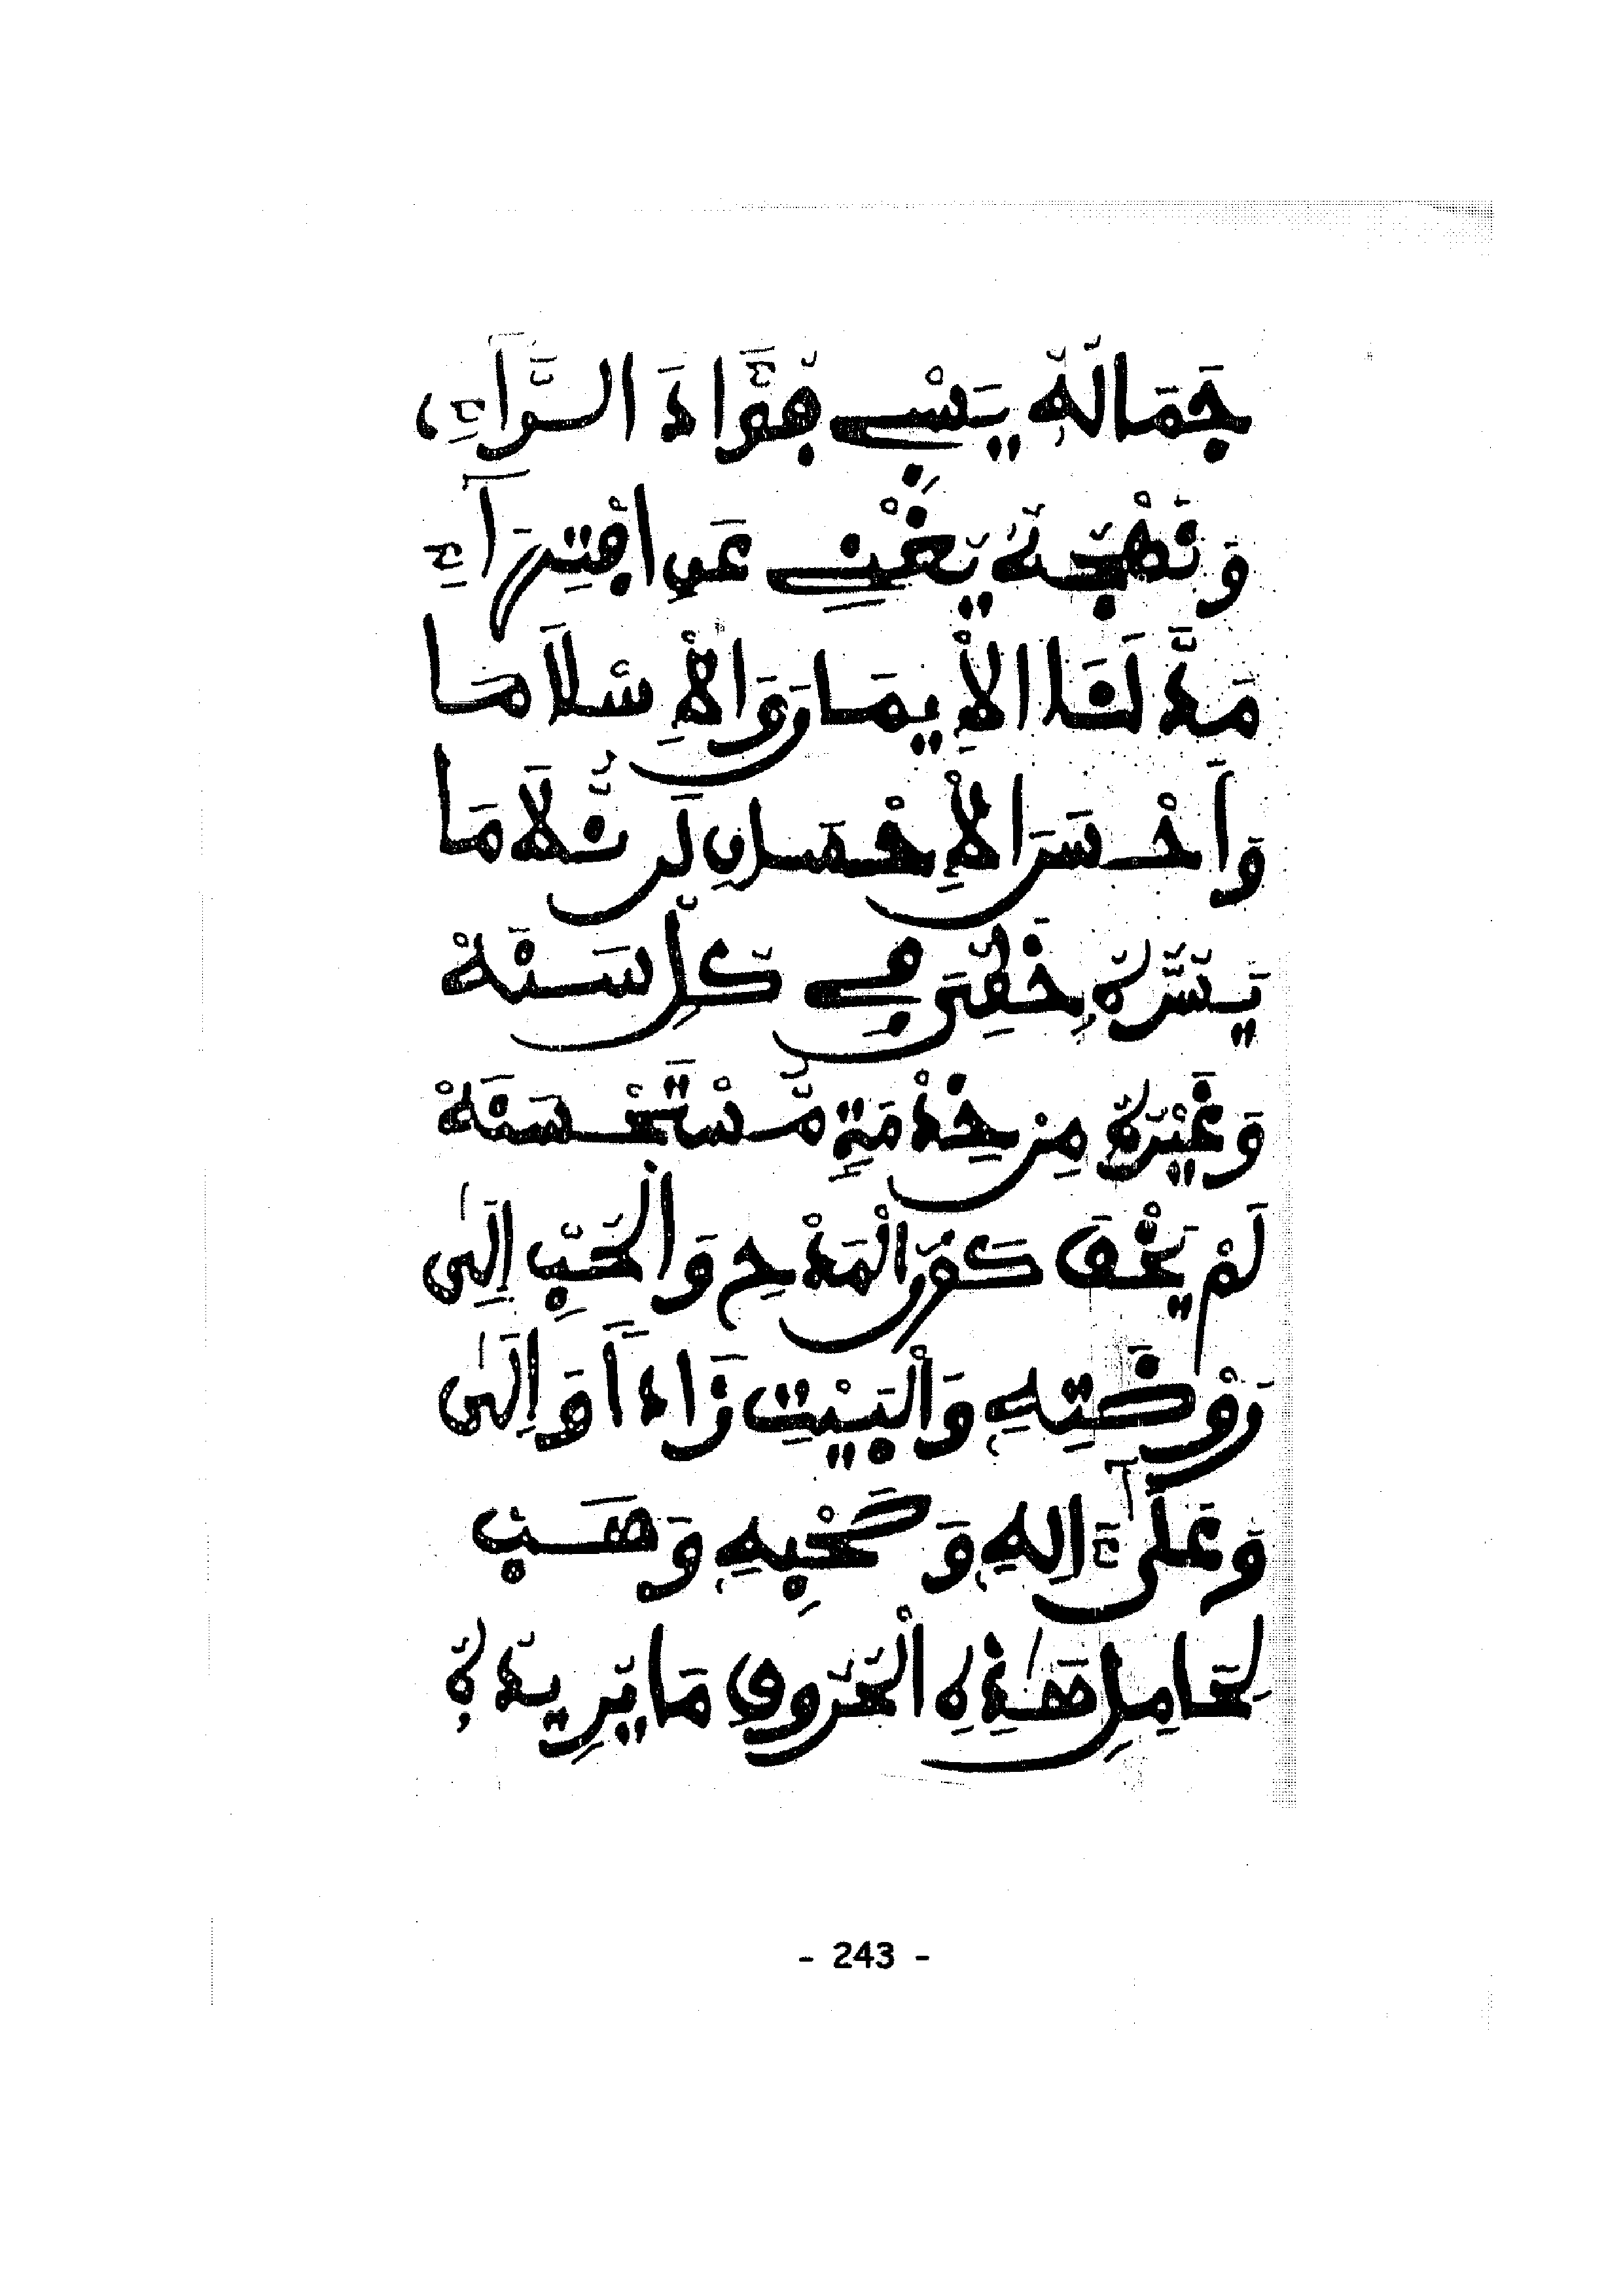 جَمَالُهُ يَسْبِي فُؤَادَ الرَّآءِ
وَنَهْجُهُ يُغْنِي عَنِ افْتِرَآءِ
مَدَّ لَنَا الْإِيمَانَ وَالْإِسْلَامَا
وَأَحْسَنَ الْإِحْسَانِ لَنْ نُّلَامَا
يَسُرُّهُ خَطِّي فِي كُلِّ سَنَهْ
وَغَيْرُهُ مِنْ خِدْمَةٍ مُّسْتَحْسَنَهْ
لَمْ يَخْفَ كَوْنُ الْمَدْحِ وَالْحُبِّ إِلَى
رَوْضَتِهِ وَالْبَيْتِ زَادَا وَإِلَى
وَعَلَى ءَالِهِ وَصَحْبِهِ وَهَبْ
لِحَامِلِ هَذِهِ الْحُرُوفِ مَا يُرِيدُهُ
- 243 -